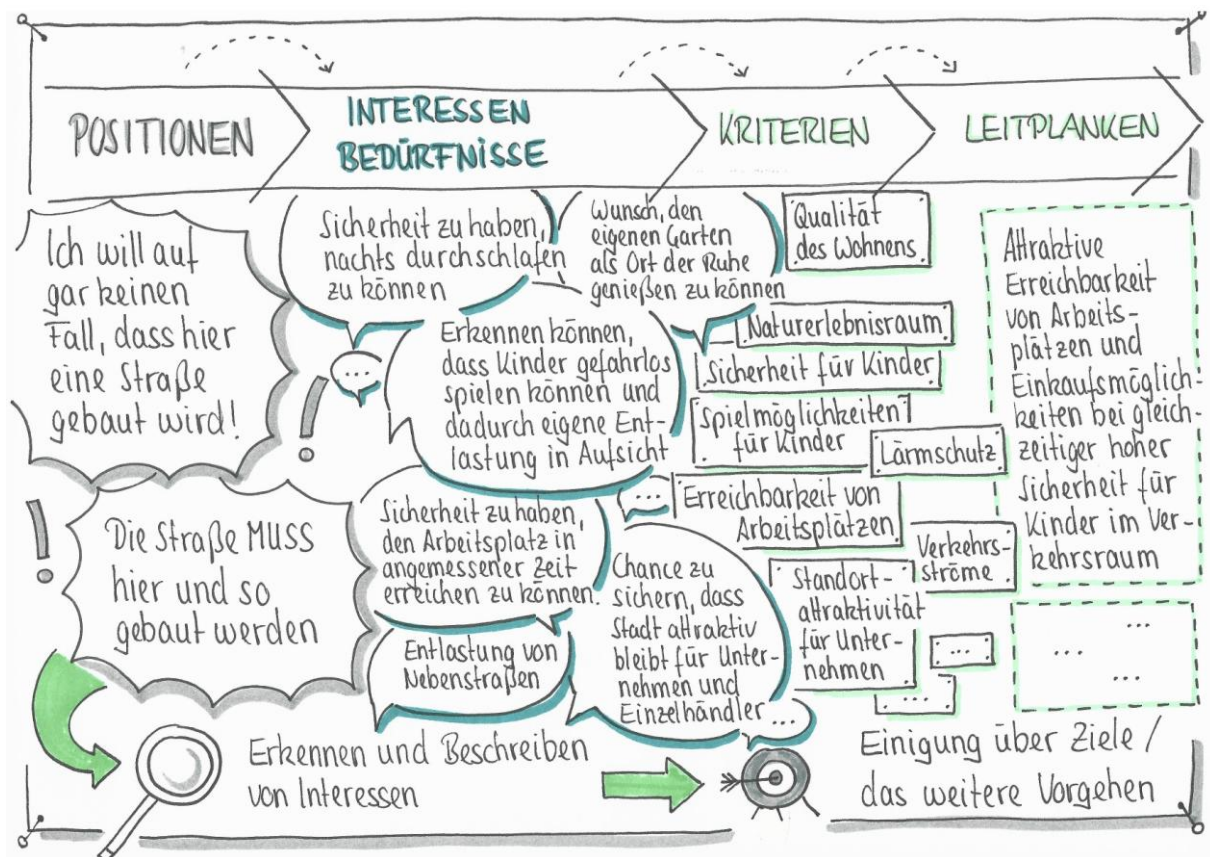 POSITIONEN
INTERESSEN
BEDÜRFNISSE
KRITERIEN
LEITPLANKEN
Ich will auf
gar keinen
Fall, dass hier
eine Straße
gebaut wird!
!
Die Straße MUSS
hier und so
gebaut werden
!
Sicherheit zu haben,
nachts durchschlafen
zu können
Wunsch, den
eigenen Garten
als Ort der Ruhe
genießen zu können
...
Erkennen können,
dass Kinder gefahrlos
spielen können und
dadurch eigene Ent-
lastung in Aufsicht
...
Sicherheit zu haben,
den Arbeitsplatz in
angemessener Zeit
erreichen zu können.
Entlastung von
Nebenstraßen
Chance zu
sichern, dass
Stadt attraktiv
bleibt für Unter-
nehmen und
Einzelhändler
...
Qualität
des Wohnens
Naturerlebnisraum
Sicherheit für Kinder
Spielmöglichkeiten
für Kinder
Lärmschutz
Erreichbarkeit von
Arbeitsplätzen
Verkehrs-
ströme
Standort-
attraktivität
für Unter-
nehmen
...
...
Attraktive
Erreichbarkeit
von Arbeits-
plätzen und
Einkaufsmöglich-
keiten bei gleich-
zeitiger hoher
Sicherheit für
Kinder im Ver-
kehrsraum
...
...
...
Erkennen und Beschreiben
von Interessen
Einigung über Ziele /
das weitere Vorgehen